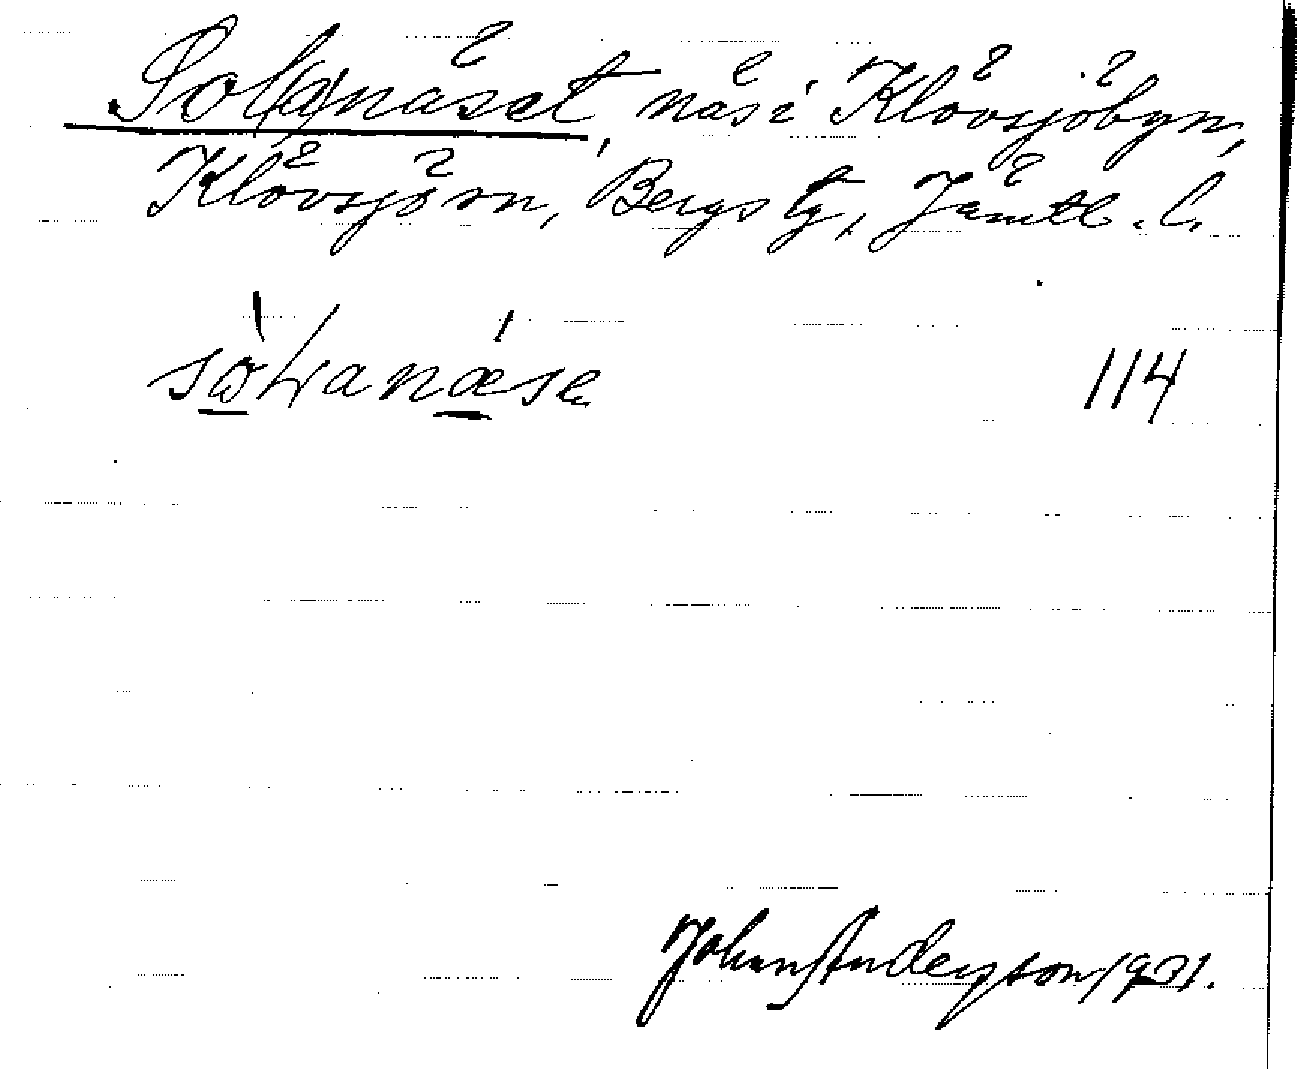 Sol(a)näset, näs i Klövsjöbyn,
Klövsjö sn, Bergs tg, Jämtl. l.
114
Johan Anderson 1931.